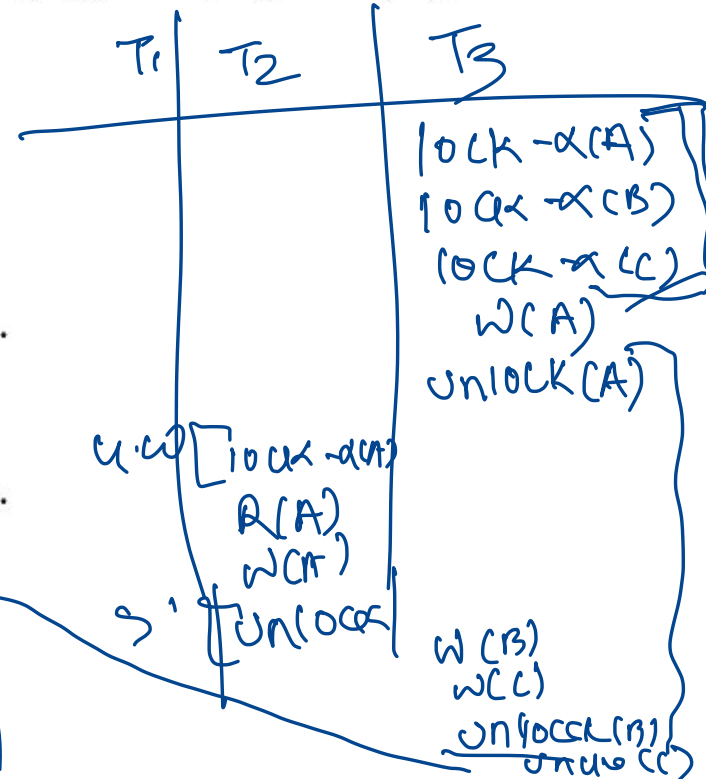 T1 T2 T3
lock-x(A)
lock-x(B)
lock-x(C)
W(A)
unlock(A)
lock-x(A)
R(A)
W(A)
unlock
W(B)
W(C)
unlock(B)